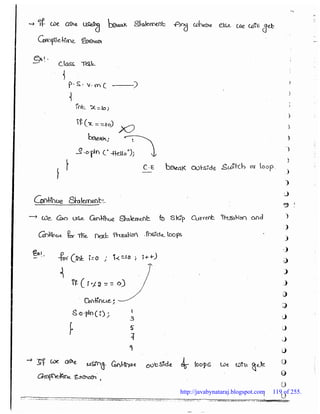 → If we are using break Statement Any where else we will get
Compile time Error
Ex:-
class Test
{
P. S. V. m ( ——)
{
int x=10;
if (x==10)
break;
S.o.pln ("Hello");
}
}
C.E break outside Switch or loop.
Continue Statement:-
→ We Can use Continue Statement to Skip Current Iteration and
Continue for the next Iteration inside loops
Ex:-
for (int i=0 ; i<=10 ; i++)
{
if (i%2 == 0)
Continue;
S.o.pln(i);
}
1
3
5
7
9
→ If we are using Continue outside of loops we will get
Compiletime Error,
http://javabynataraj.blogspot.com 119 of 255.